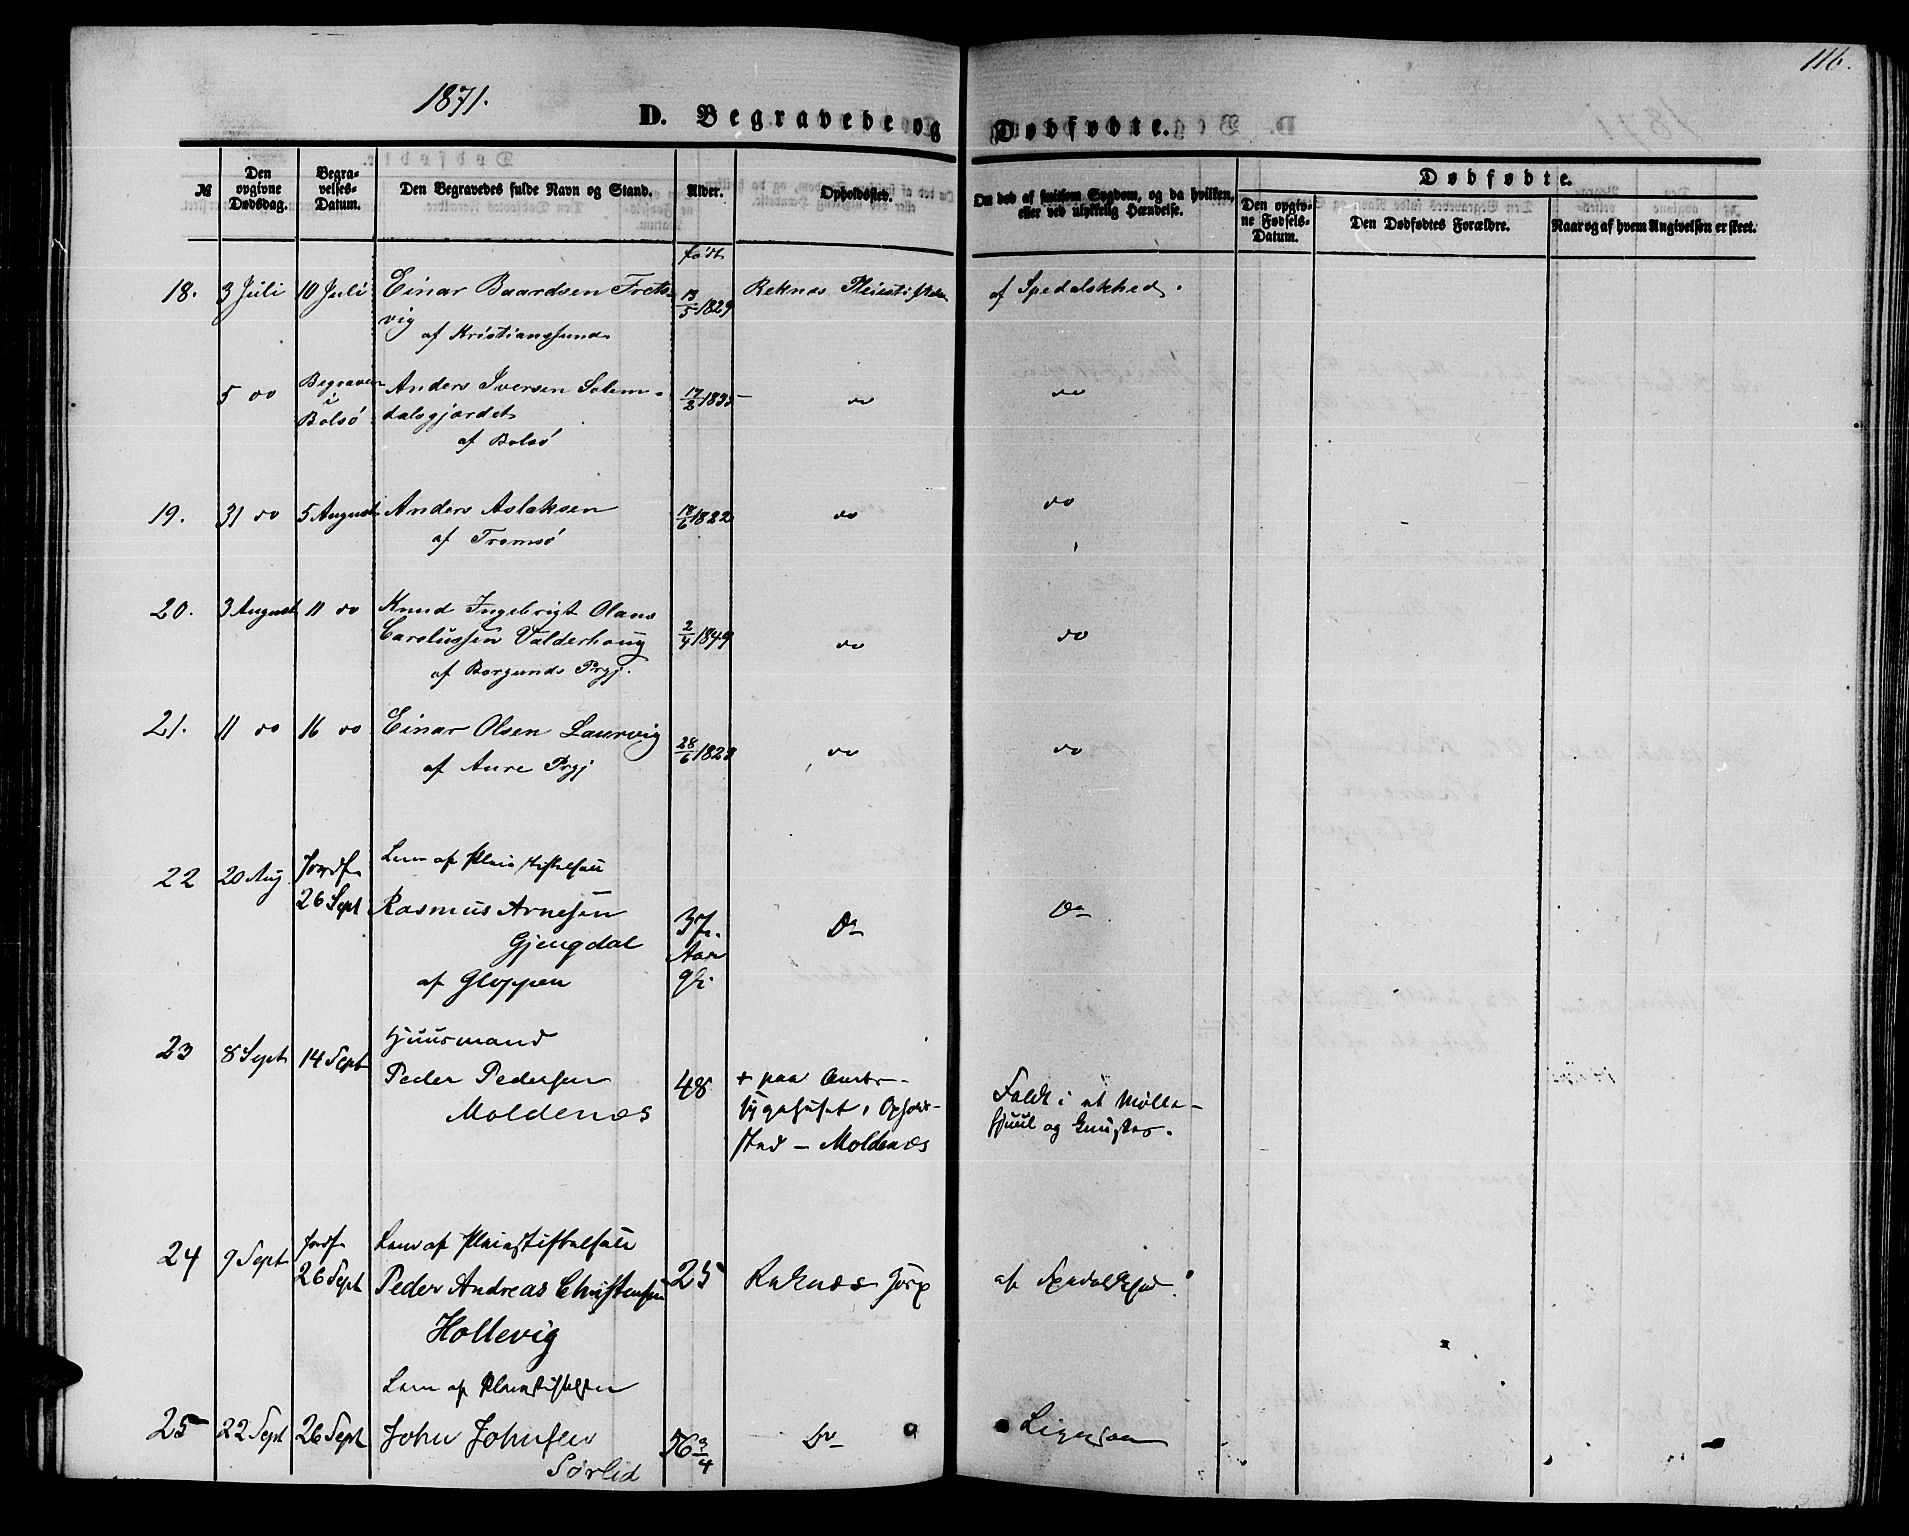 116.
1871.
D. Begravede og Dødfødte.
№
Den opgivne Dødsdag.
Begravelses-Datum.
Den Begravedes fulde Navn og Stand.
Alder.
Opholdssted.
Om død af smitsom Sygdom, og da hvilken, eller ved ulykkelig Hændelse.
Dødfødte.
Den opgivne Fødsels-Datum.
Den Dødfødtes Forældre.
Naar og af hvem Angivelsen er skeet.
født
18. 3 Juli 10 Juli Einar Baardsen Frets- 13/5 1829 Reknes af Spedalskhed.
vig
af Kristianssund
5 do Begraven i Bolsø Anders Iversen Solem- 17/2 1835 do do
dalsgjærdet
af Bolsø
19. 31 do 5 August Anders Aslaksen 18/6 1822 do do
af Tromsø
20. 3 August 11 do Knud Ingebrigt Olaus
Carelussen Valderhoug 2/4 1849 do do
af Borgunds Prgj.
21. 11 do 16 do Einar Olsen Laurvig 28/6 1823 do do
af Aure Prgj
Lem af
22 20 Aug Jordf. 26 Sept Rasmus Arnesen 37 Aar Do Do
Gjengdal
af Gloppen
23 8 Sept 14 Sept Huusmand
Peder Pedersen 48 + paa Amts-
Moldenæs sygehuset, Opholds-
sted – Moldenæs
Faldt i et Mølle-
hjuul og knustes.
Lem af Pleiestiftelsen
24 9 Sept Jordf. 26 Sept Peder Andreas Christensen 25 Reknæs Hosp af Spedalskhed.
Hollevig
Lem af Pleiestiftelsen
25 22 Sept 26 Sept John Johnsen 56 3/4 Do Ligesaa
Sørlid